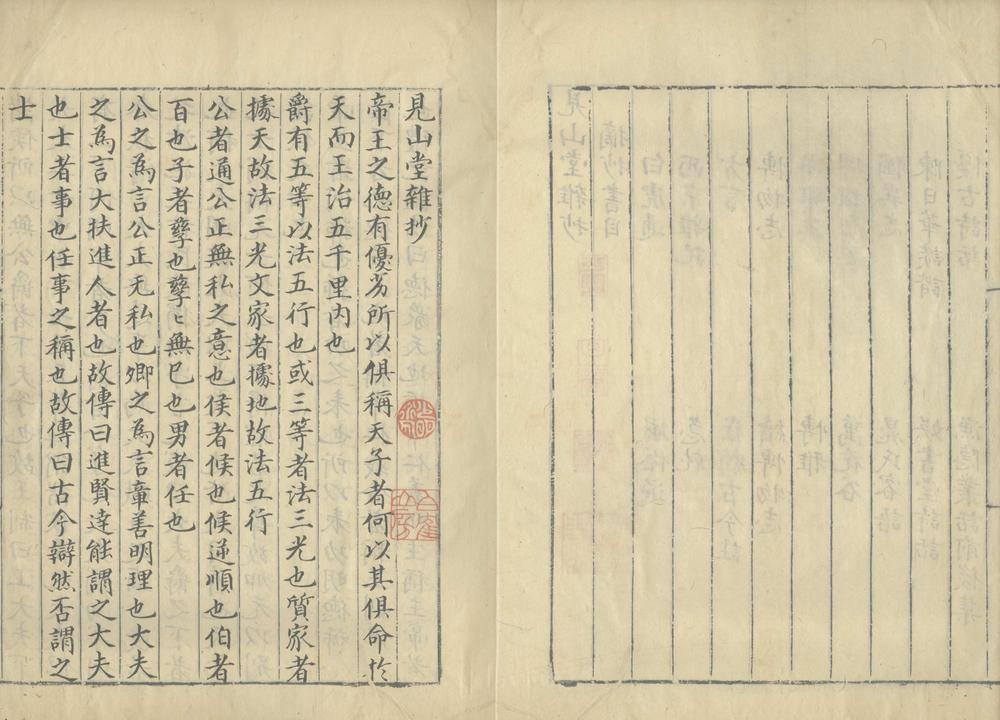 見山堂雜抄
帝王之德有優劣所以俱稱天子者何以其俱命於
天而王治五千里内也
爵有五等以法五行也或三等者法三光也質家者
據天故法三光文家者據地故法五行
公者通公正無私之意也侯者候也候逆順也伯者
百也子者孳也孳〻無已也男者任也
公之為言公正无私也卿之為言章善明理也大夫
之為言大扶進人者也故傳曰進賢達能謂之大夫
也士者事也任事之稱也故傳曰古今辯然否謂之
士